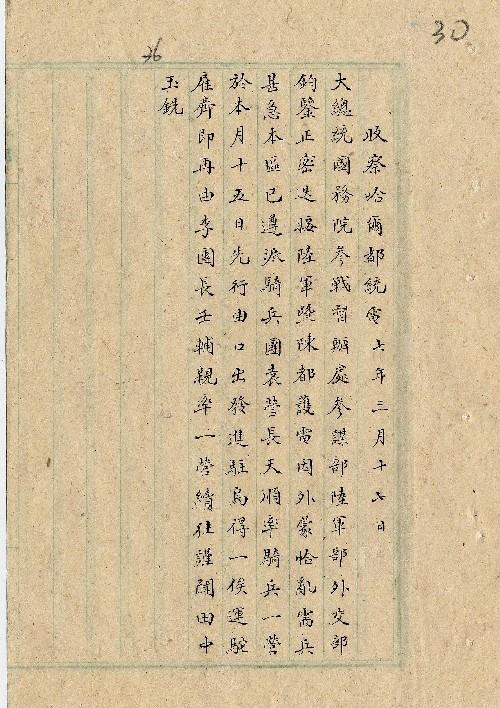 30
36
收察哈爾都統電七年三月十六日
大總統國務院參戰督辦處參謀部陸軍部外交部
鈞鑒正密迭接陸軍暨陳都護電因外蒙恰亂需兵
甚急本區已遵派騎兵團袁營長天順率騎兵一營
於本月十五日先行由口出發進駐烏得一俟運駝
雇齊即再由李團長壬輔親率一營續往謹聞田中
玉銑